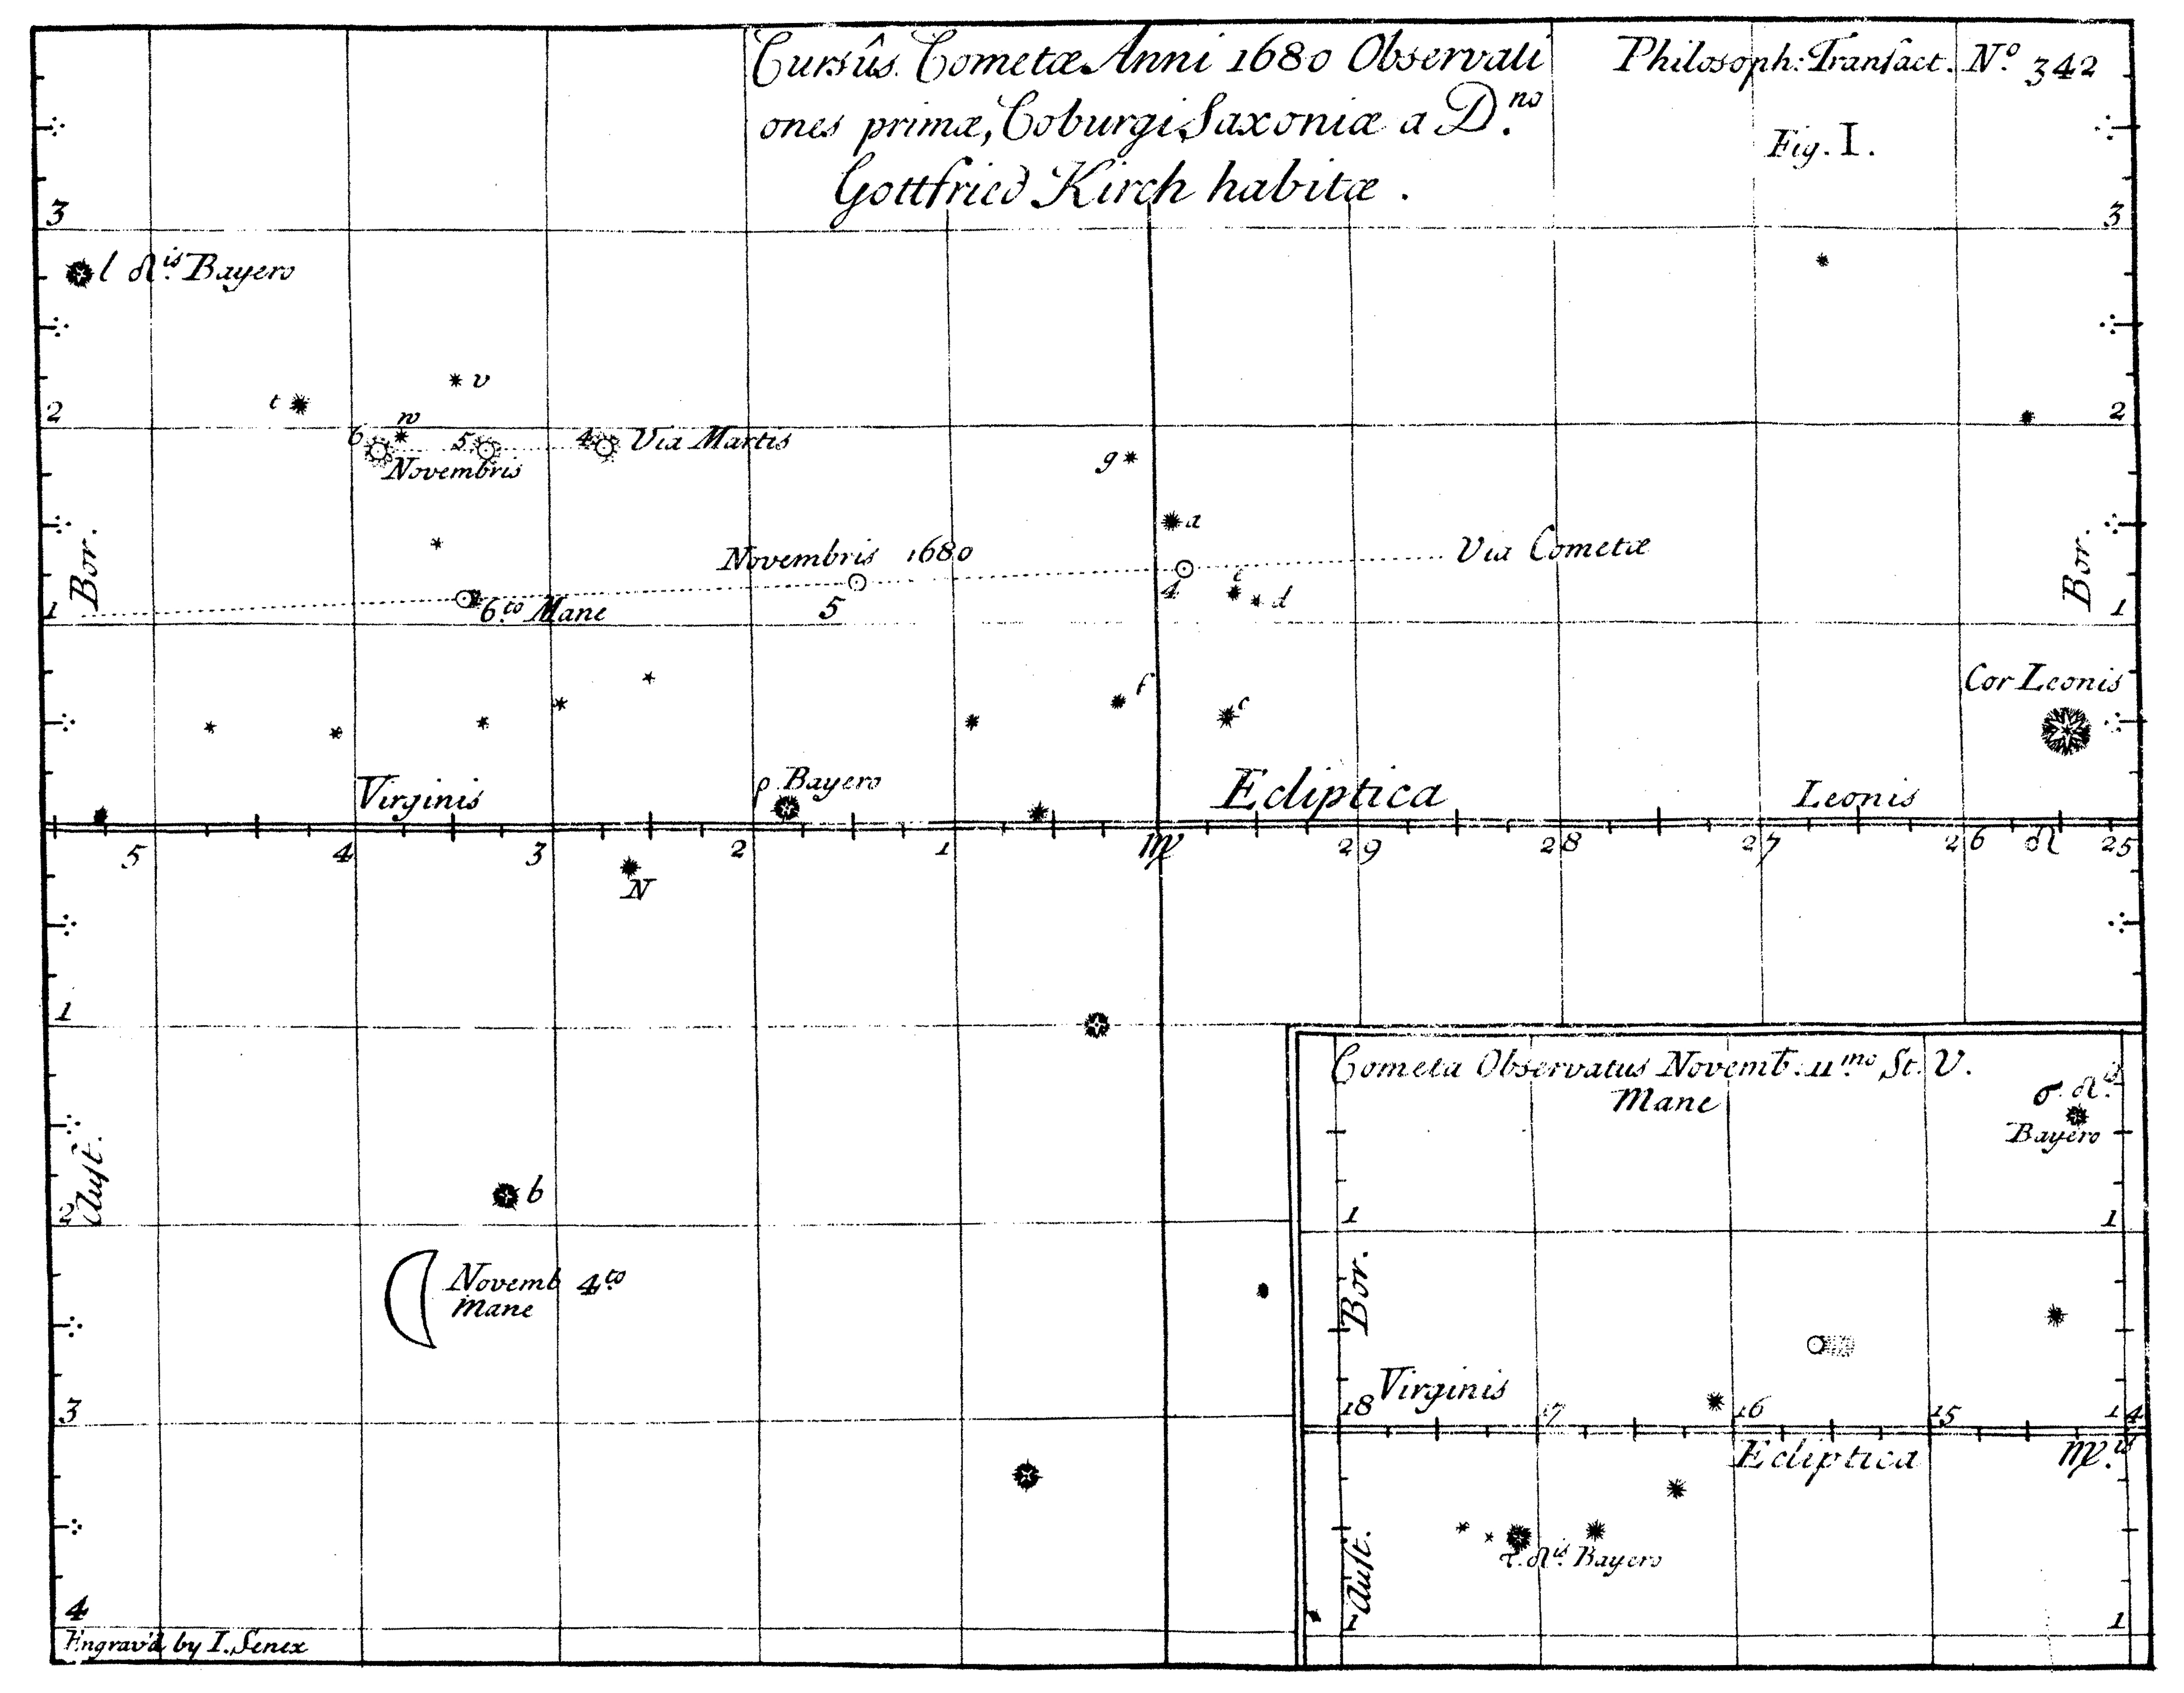 Cursûs Cometæ Anni 1680 Observati
ones primæ, Coburgi Saxoniæ a D.no
Gottfried Kirch habitæ.
Philosoph: Transact. No. 342
Fig. I.
3
3
l ♌is Bayero
v
t
2
2
w
6
5
4
Via Martis
Novembris
g
a
Bor.
Bor.
Novembris 1680
Via Cometæ
4
e
d
1
6to Mane
5
1
f
c
Cor Leonis
Virginis
ρ Bayero
Ecliptica
Leonis
5
4
3
2
1
♍
29
28
27
26
♌
25
N
1
Aust.
2
b
Novemb 4to
Mane
3
4
Engrav'd by I. Senex
Cometa Observatus Novemb. 11mo St. V.
Mane
σ. ♌is
Bayero
1
1
Bor.
Virginis
18
17
16
15
14
Ecliptica
♍is
τ. ♌is Bayero
Aust.
1
1